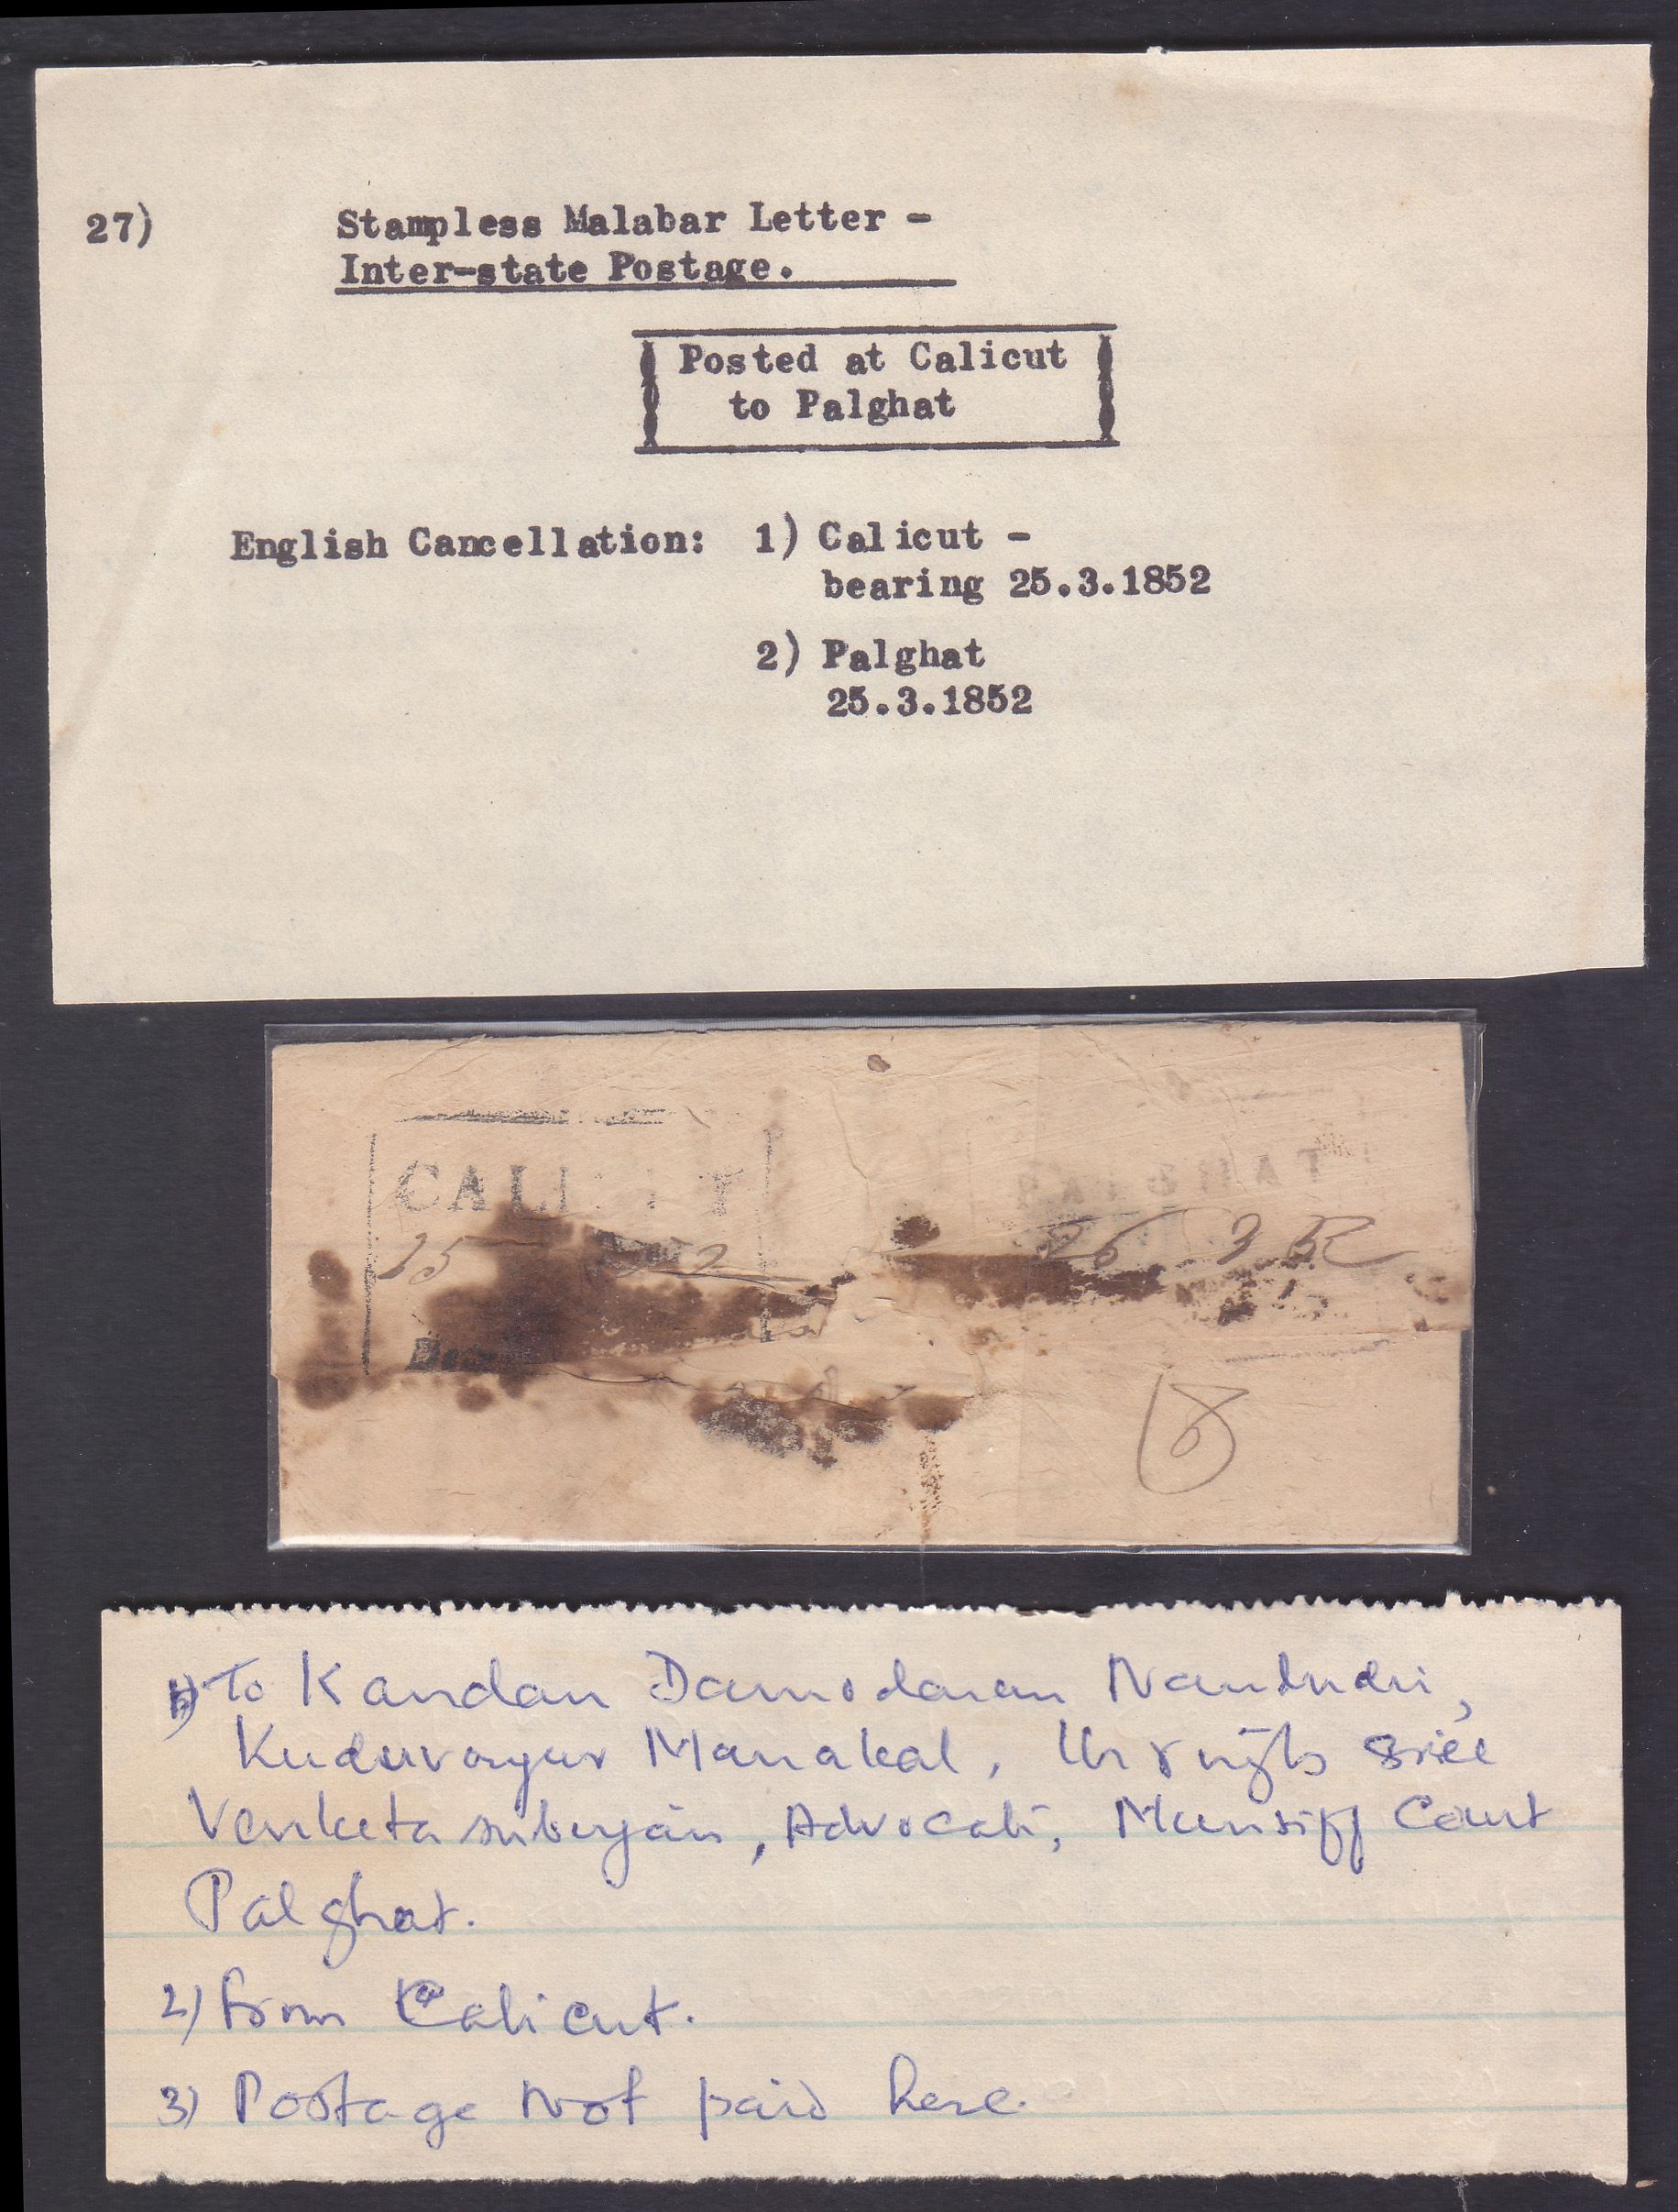 27)
Stampless Malabar Letter -
Inter-state Postage.
Posted at Calicut
to Palghat
English Cancellation: 1) Calicut -
bearing 25.3.1852
2) Palghat
25.3.1852
CALI T
25
26 3 52
8
1) To Kandan Damodaran Nambudri,
Kuduvayur Manakal, through Sree
Venketa , Advocate, Munsiff Court
Palghat.
2) from Calicut.
3) Postage not paid here.